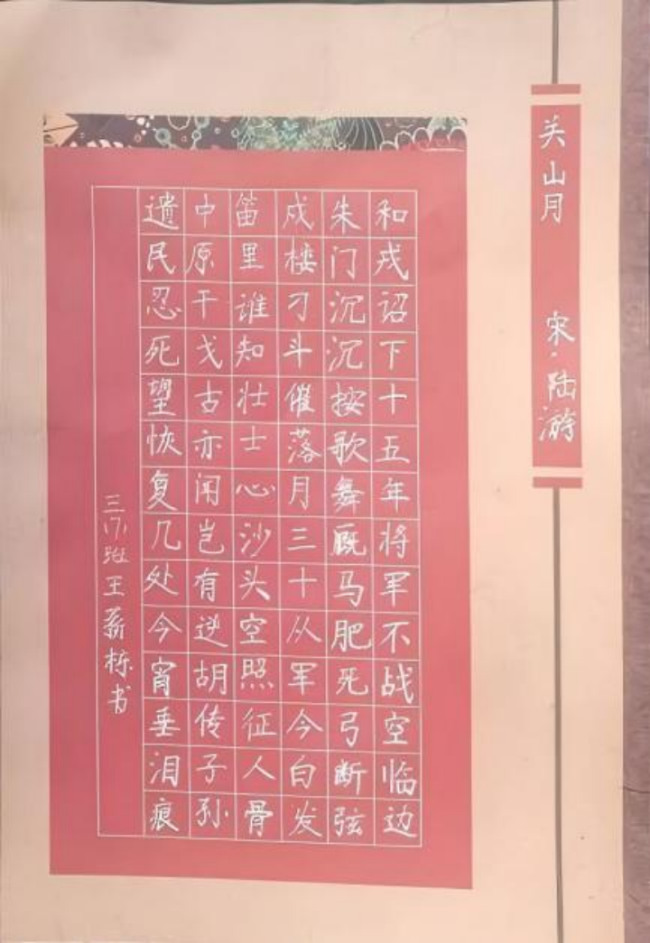 关山月 宋·陆游
和戎诏下十五年将军不战空临边
朱门沉沉按歌舞厩马肥死弓断弦
戍楼刁斗催落月三十从军今白发
笛里谁知壮士心沙头空照征人骨
中原干戈古亦闻岂有逆胡传子孙
遗民忍死望恢复几处今宵垂泪痕
三(1)班王新栋书